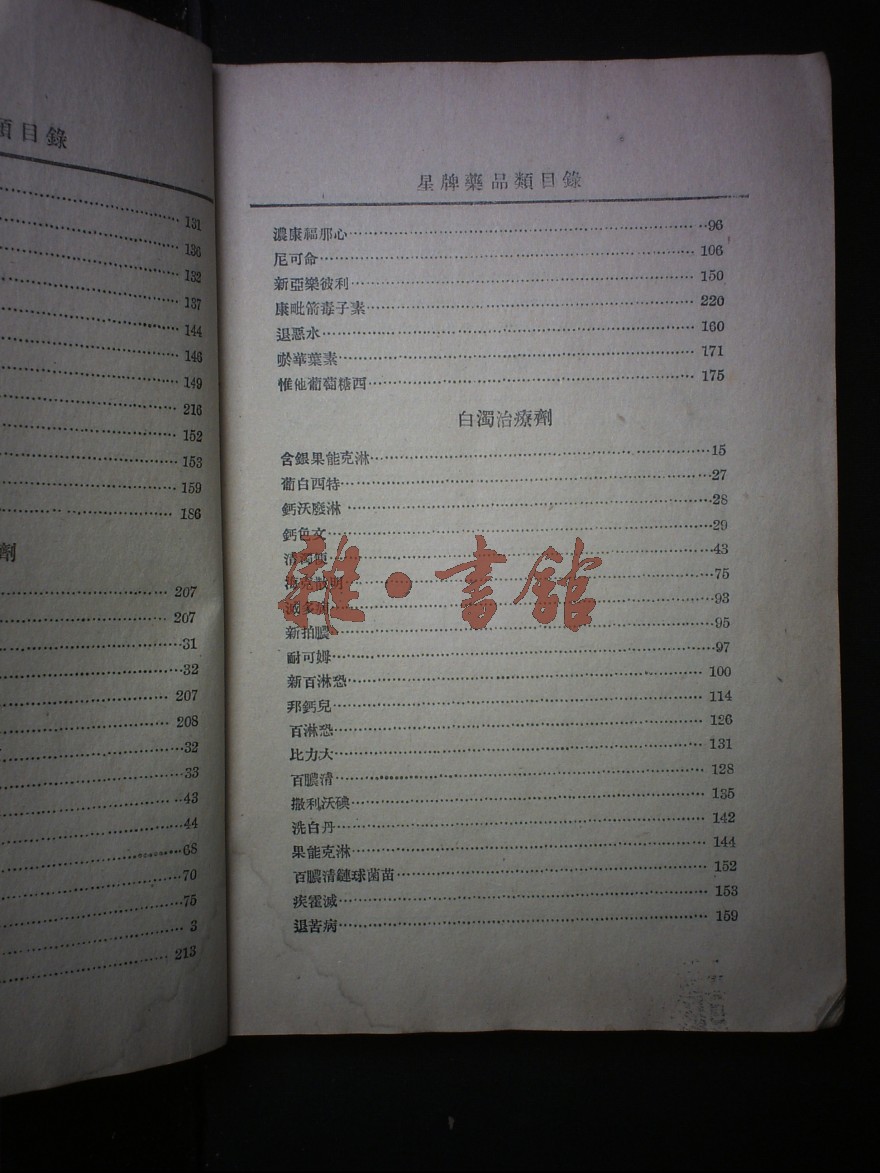 類目錄
131
136
132
137
144
146
149
216
152
153
159
186
劑
207
207
31
32
207
208
32
33
43
44
68
70
75
3
213
星牌藥品類目錄
濃康福那心 96
尼可命 106
新亞樂彼利 150
康毗箭毒子素 220
退惡水 160
唹華葉素 171
惟他葡萄糖西 175
白濁治療劑
含銀果能克淋 15
葡白西特 27
鈣沃廢淋 28
鈣色文 29
43
75
93
新拍膿 95
耐可姆 97
新百淋恐 100
邦鈣兒 114
百淋恐 126
比力大 131
百膿清 128
撒利沃碘 135
洗白丹 142
果能克淋 144
百膿清鏈球菌苗 152
疾霍滅 153
退苦病 159
雜·書館